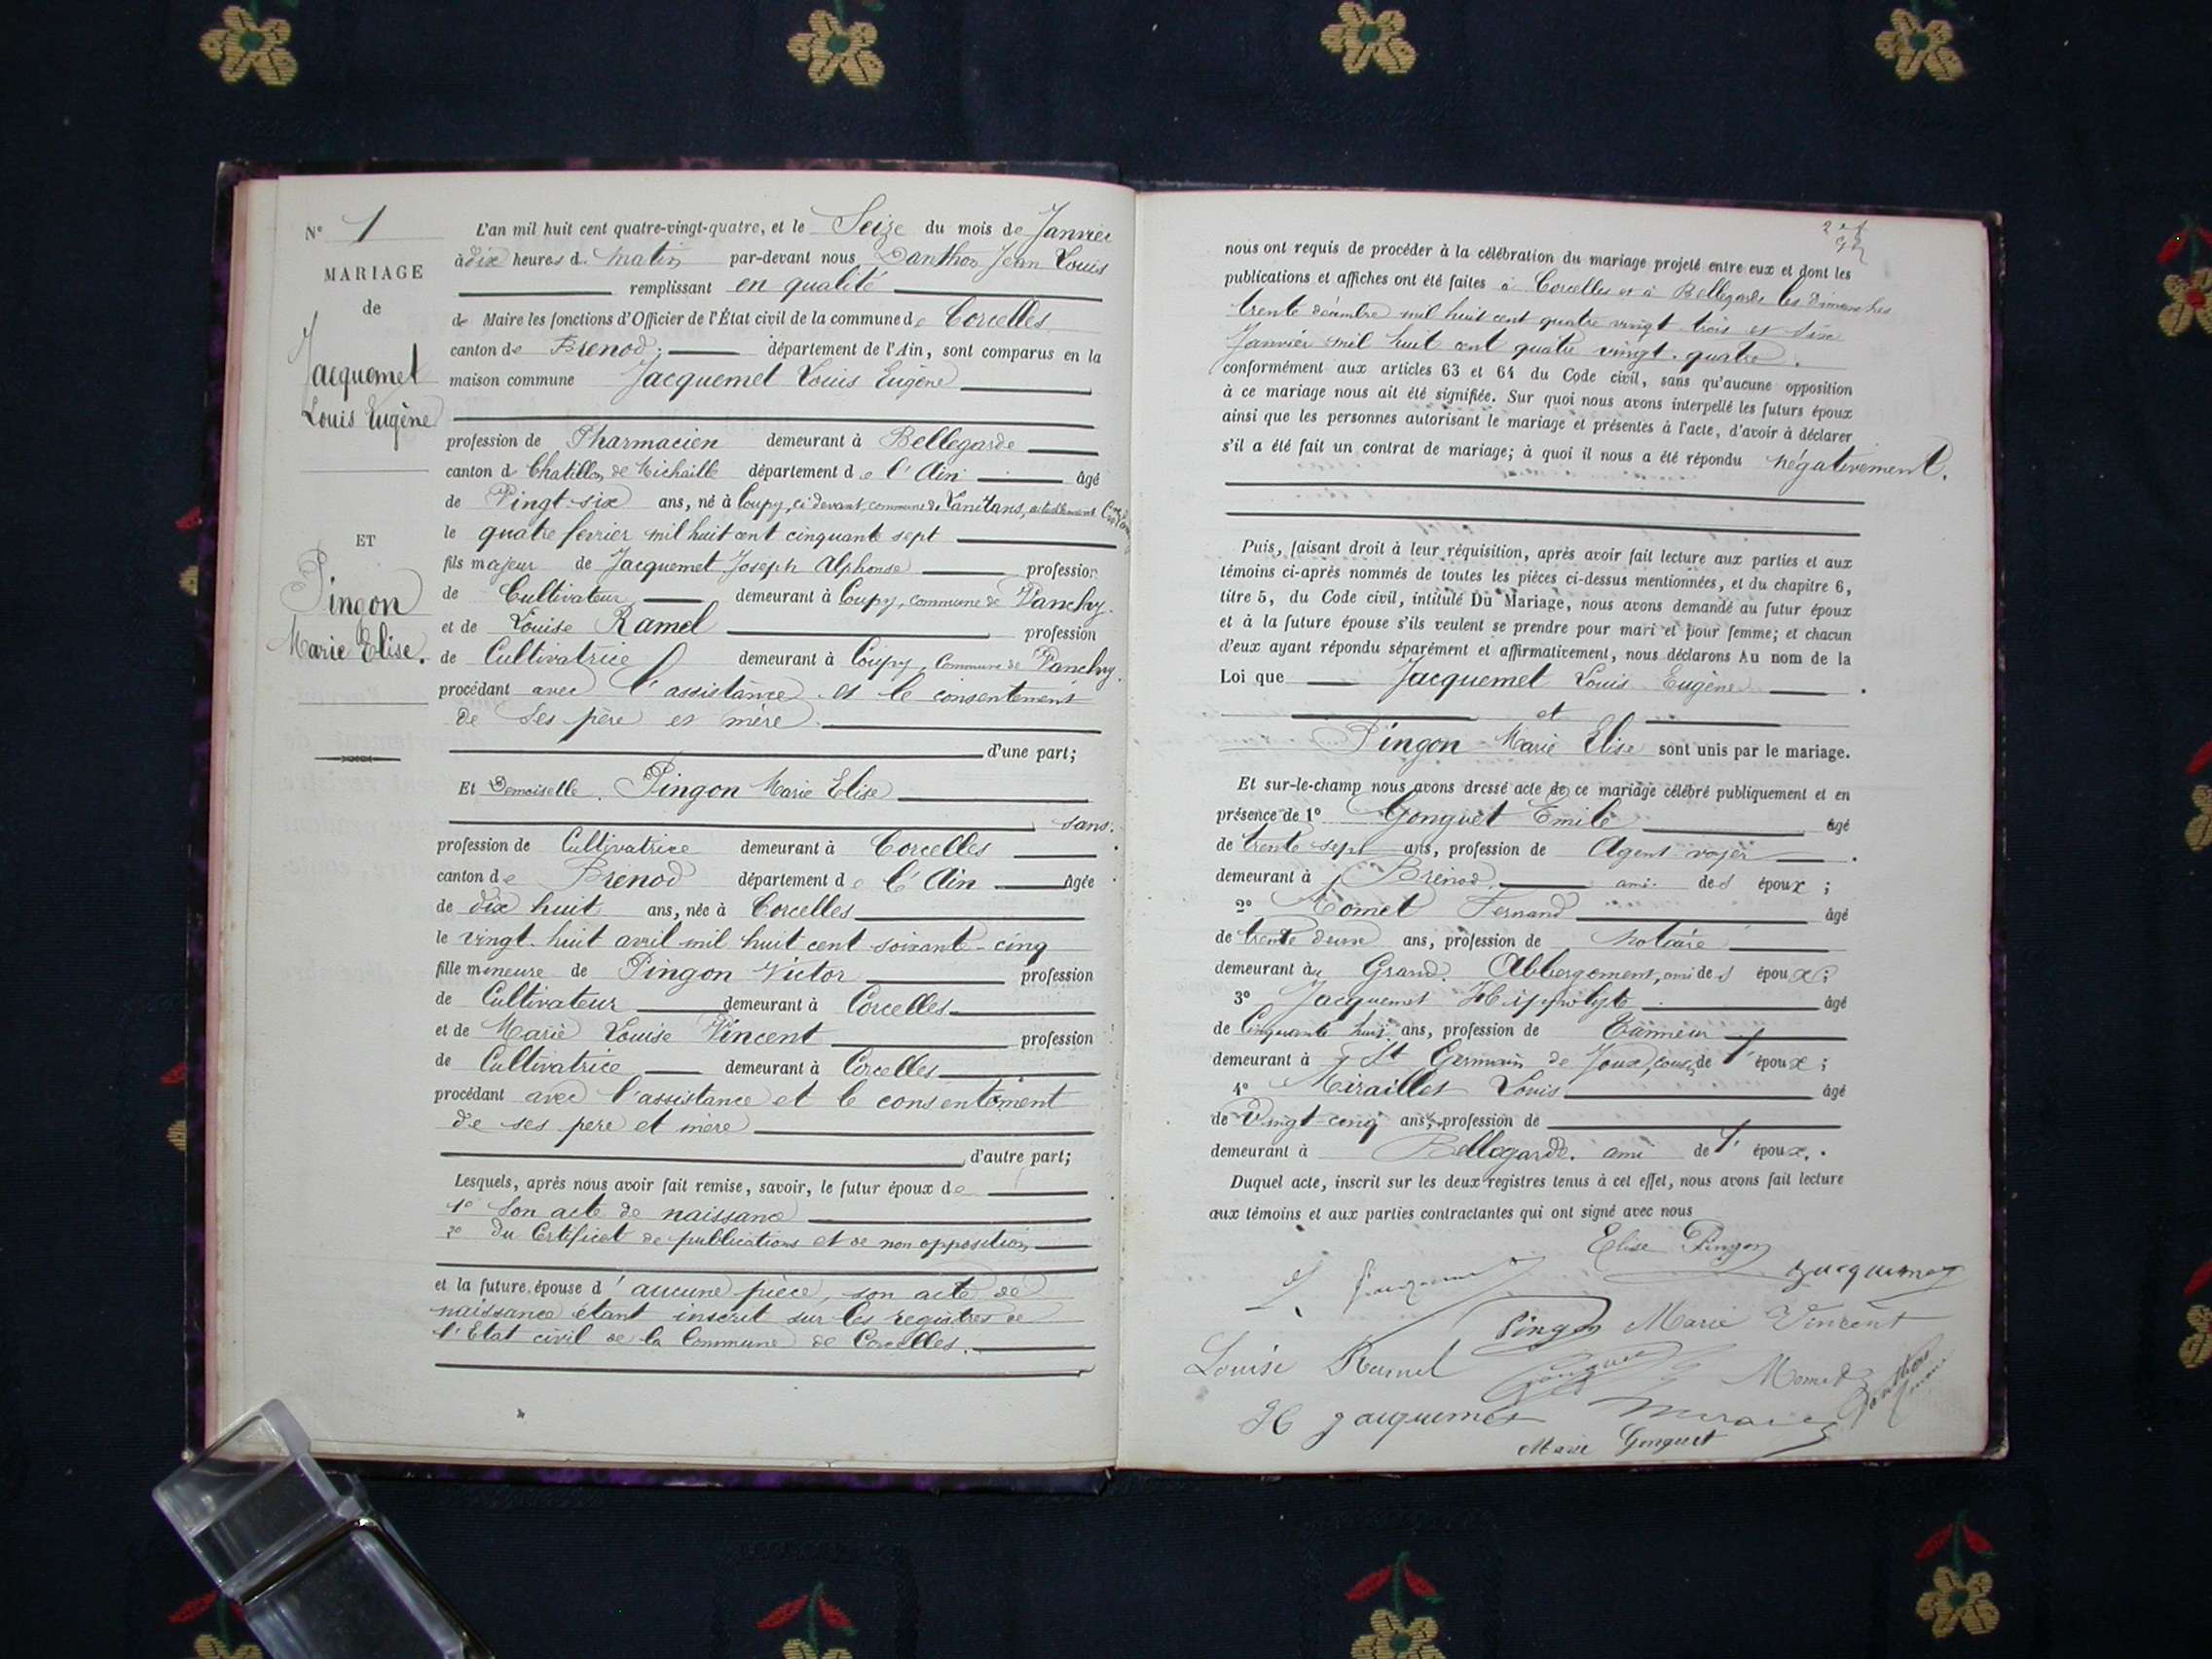 N° 1
MARIAGE
de
Jacquemet
Louis Eugène
ET
Pingon
Marie Elise.
L'an mil huit cent quatre-vingt-quatre, et le Seize du mois de Janvier
à dix heures d. matin par-devant nous Danthon Jean Louis
remplissant en qualité
de Maire les fonctions d'Officier de l'État civil de la commune de Corcelles
canton de Brenod; département de l'Ain, sont comparus en la
maison commune Jacquemet Louis Eugène
profession de Pharmacien demeurant à Bellegarde
canton d Chatillon de Michaille département de l'Ain âgé
de Vingt-six ans, né à Coupy, ci devant, commune de Lanitans, actuellement
le quatre fevrier mil huit cent cinquante sept
fils majeur de Jacquemet Joseph Alphonse profession
de Cultivateur demeurant à Coupy, commune de Vanchy.
et de Louise Ramel profession
de Cultivatrice demeurant à Coupy, Commune de Vanchy.
procédant avec l'assistance et le consentement
de ses père et mère
d'une part;
Et Demoiselle Pingon Marie Elise
sans.
profession de Cultivatrice demeurant à Corcelles
canton de Brenod département de l'Ain âgée
de dix huit ans, née à Corcelles
le vingt-huit avril mil huit cent soixante-cinq
fille mineure de Pingon Victor profession
de Cultivateur demeurant à Corcelles
et de Marie Louise Vincent profession
de Cultivatrice demeurant à Corcelles
procédant avec l'assistance et le consentement
de ses pere et mère
d'autre part;
Lesquels, après nous avoir fait remise, savoir, le futur époux de
1° Son acte de naissance
2° du Certificat de publications et de non opposition
et la future épouse d'aucune pièce, son acte de
naissance étant inscrit sur les registres de
l'Etat civil de la Commune de Corcelles.
nous ont requis de procéder à la célébration du mariage projeté entre eux et dont les
publications et affiches ont été faites à Corcelles et à Bellegarde les Dimanches
trente décembre mil huit cent quatre vingt trois et six
Janvier mil huit cent quatre vingt-quatre.
conformément aux articles 63 et 64 du Code civil, sans qu'aucune opposition
à ce mariage nous ait été signifiée. Sur quoi nous avons interpellé les futurs époux
ainsi que les personnes autorisant le mariage et présentes à l'acte, d'avoir à déclarer
s'il a été fait un contrat de mariage; à quoi il nous a été répondu négativement.
Puis, faisant droit à leur réquisition, après avoir fait lecture aux parties et aux
témoins ci-après nommés de toutes les pièces ci-dessus mentionnées, et du chapitre 6,
titre 5, du Code civil, intitulé Du Mariage, nous avons demandé au futur époux
et à la future épouse s'ils veulent se prendre pour mari et pour femme; et chacun
d'eux ayant répondu séparément et affirmativement, nous déclarons Au nom de la
Loi que Jacquemet Louis Eugène
et
Pingon Marie Elise sont unis par le mariage.
Et sur-le-champ nous avons dressé acte de ce mariage célébré publiquement et en
présence de 1° Gonguet Emile âgé
de trente sept ans, profession de Agent voyer
demeurant à Brénod, ami des époux;
2° Momet Fernand âgé
de trente deux ans, profession de notaire
demeurant au Grand Abbergement, ami des époux;
3° Jacquemet Hippolyte âgé
de Cinquante huit ans, profession de Tanneur
demeurant à St Germain de Joux, cousin de l'époux;
4° Miraillet Louis âgé
de Vingt-cinq ans, profession de
demeurant à Bellegarde. ami de l'époux.
Duquel acte, inscrit sur les deux registres tenus à cet effet, nous avons fait lecture
aux témoins et aux parties contractantes qui ont signé avec nous
Elise Pingon
Jacquemet
Pingon Marie Vincent
Louise Ramel
Gonguet Momet Danthon maire
H Jacquemet
Marie Gonguet